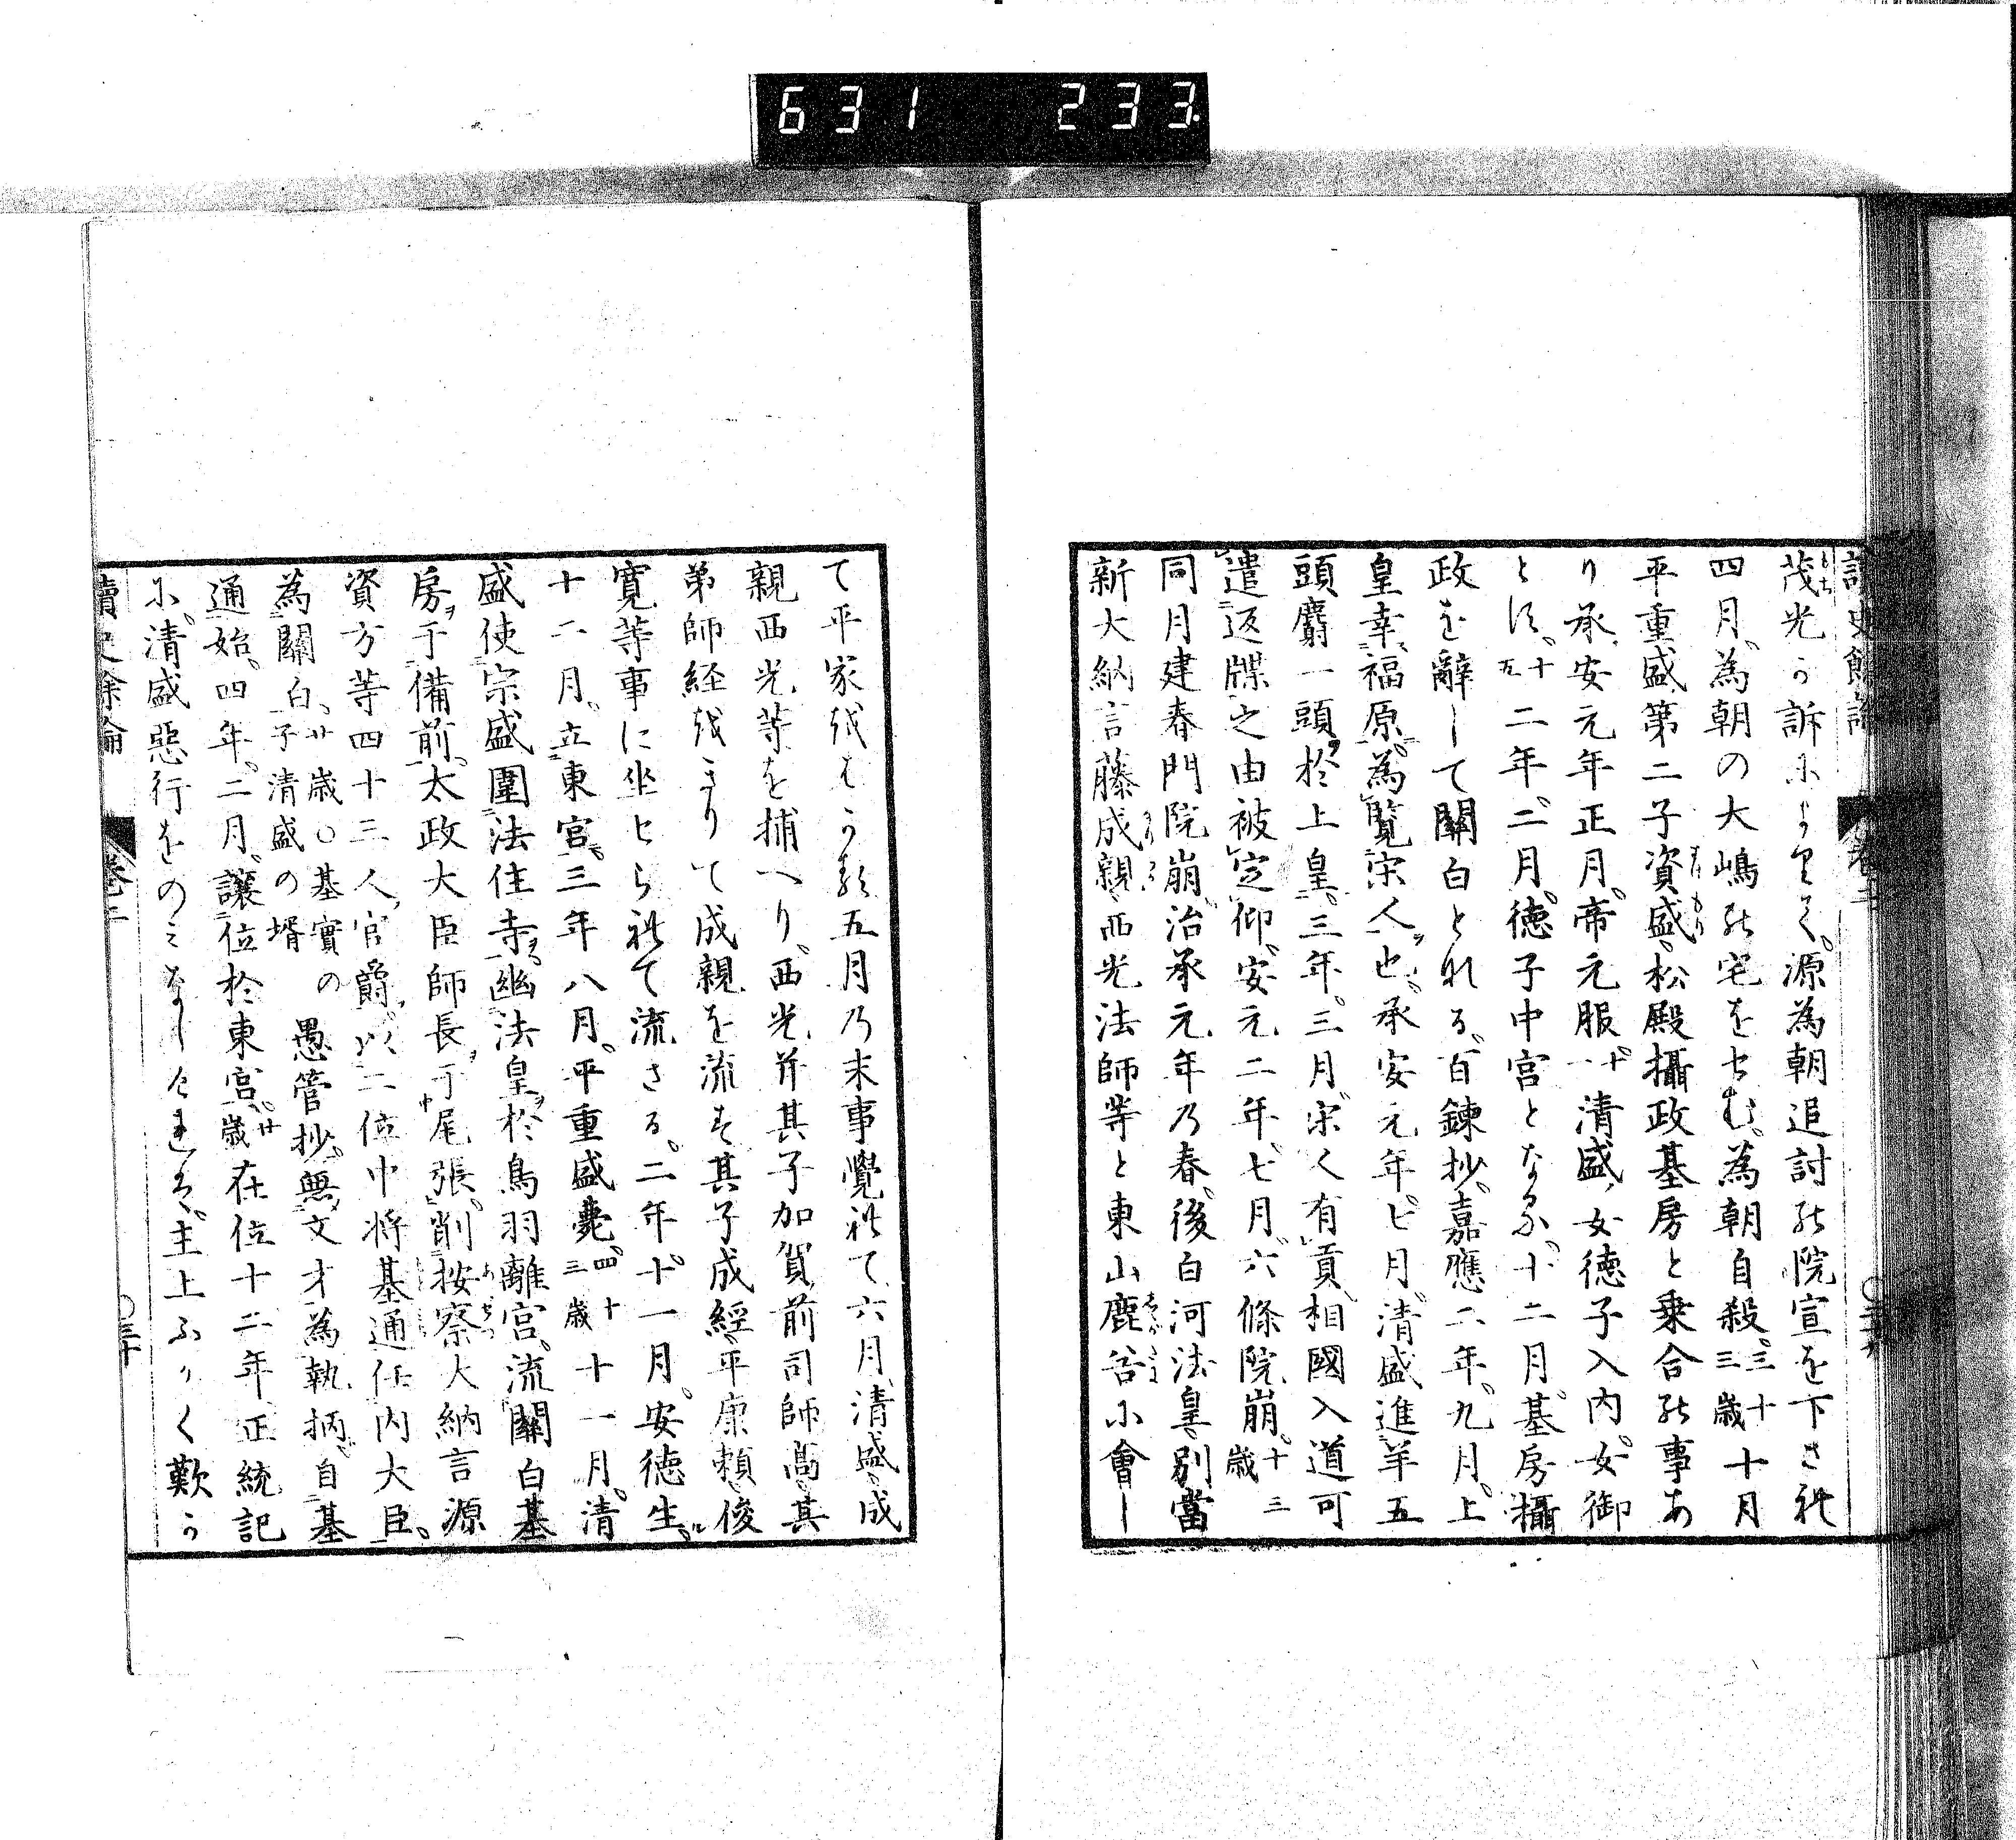 631 233
茂光か訴によりて源為朝追討の院宣を下され
四月為朝の大嶋の宅をせむ為朝自殺三十三歳十月
平重盛第二子資盛松殿攝政基房と乗合の事あ
り承安元年正月帝元服十一清盛女徳子入内女御
とす十五二年二月徳子中宮となる十二月基房攝
政を辭して關白となる百錬抄嘉應二年九月上
皇幸福原為覧宋人也承安元年七月清盛進羊五
頭麝一頭於上皇三年三月宋人有貢相國入道可
遣返牒之由被定仰安元二年七月六條院崩十三歳
同月建春門院崩治承元年乃春後白河法皇別當
新大納言藤成親西光法師等と東山鹿谷に會し
て平家をはかる五月乃末事覺れて六月清盛成
親西光等を捕へり西光并其子加賀前司師高其
弟師経をきりて成親を流す其子成經平康頼俊
寛等事に坐せられて流さる二年十一月安徳生
十二月立東宮三年八月平重盛薨四十三歳十一月清
盛使宗盛圍法住寺幽法皇於鳥羽離宮流關白基
房于備前太政大臣師長于尾張削按察大納言源
資方等四十三人官爵以二位中将基通任内大臣
為關白廿歳○基實の子清盛の壻愚管抄無文才為執柄自基
通始四年二月讓位於東宮廿歳在位十二年正統記
に清盛惡行をのみなしたれば主上ふかく歎か
讀史餘論 巻二 ○三十